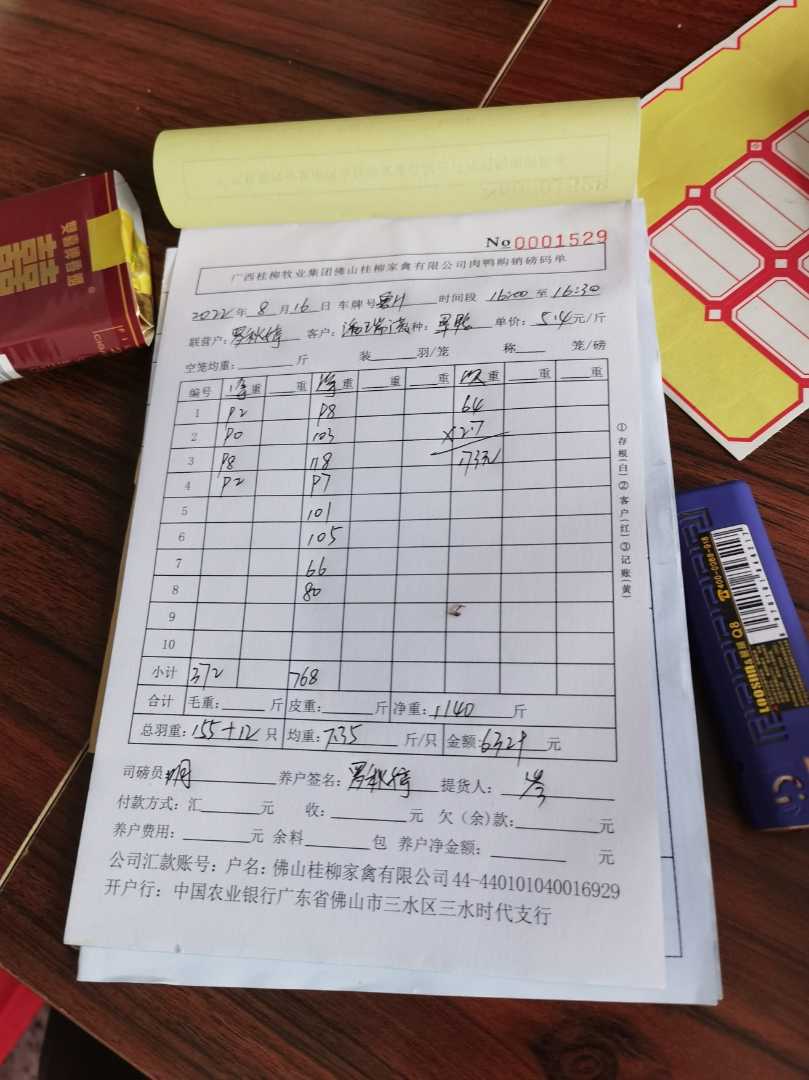 No 0001529
广西桂柳牧业集团佛山桂柳家禽有限公司肉鸭购销磅码单
2022年 8 月 16 日 车牌号 时间段 16:00 至 16:30
联营户: 罗秋 客户: 种: 单价: 5.4 元/斤
空笼均重: 斤 装 羽/笼 称 笼/磅
编号 净重 重 净重 重 重 次重 重 重
1 92 98 64
2 90 103 ×2.7
3 98 118 173元
4 92 97
5 101
6 105
7 66
8 80
9
10
小计 372 768
合计 毛重: 斤 皮重: 斤 净重: 1140 斤
总羽重: 155+12 只 均重: 7.35 斤/只 金额: 6329 元
司磅员: 明 养户签名: 罗秋 提货人:
付款方式: 汇 元 收: 元 欠(余)款: 元
养户费用: 元 余料 包 养户净金额: 元
公司汇款账号: 户名: 佛山桂柳家禽有限公司 44-440101040016929
开户行: 中国农业银行广东省佛山市三水区三水时代支行
①存根(白)②客户(红)③记账(黄)
雙喜牌香煙
囍
400-0088-918